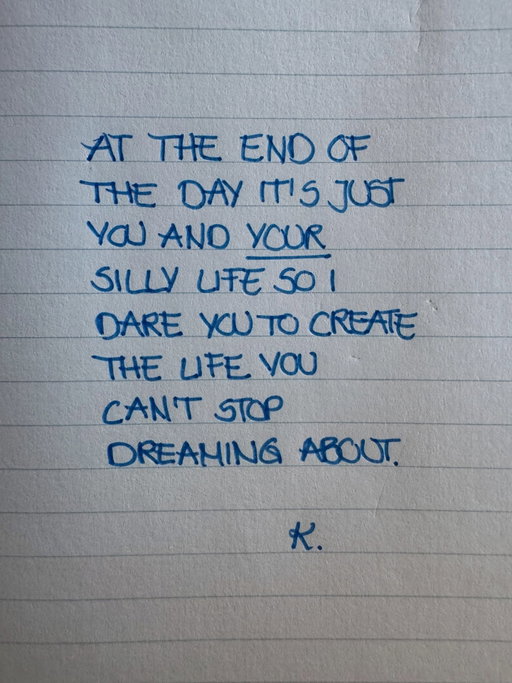 AT THE END OF
THE DAY IT'S JUST
YOU AND YOUR
SILLY LIFE SO I
DARE YOU TO CREATE
THE LIFE YOU
CAN'T STOP
DREAMING ABOUT.
K.